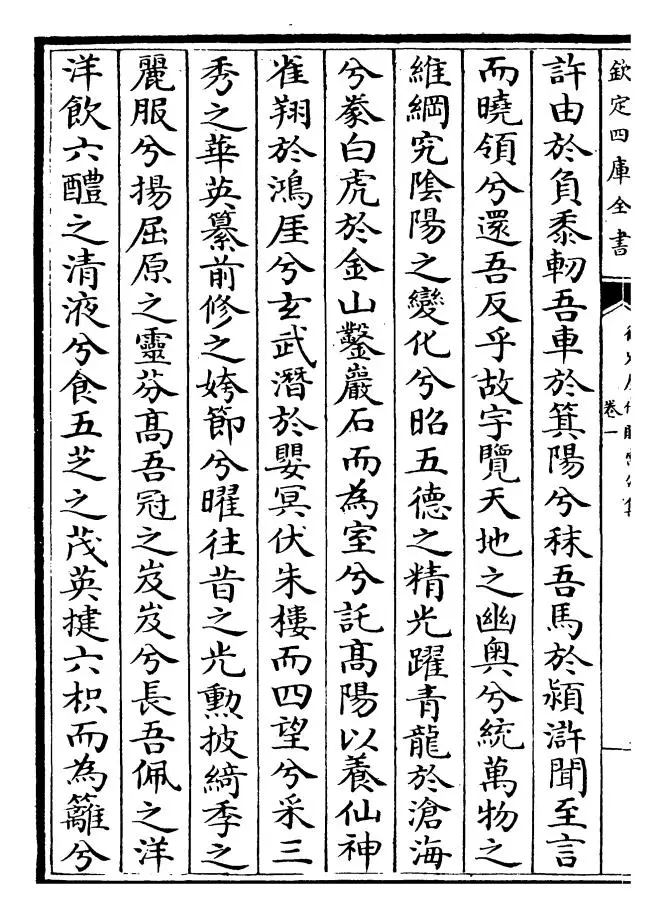 欽定四庫全書
卷一
許由於負黍軔吾車於箕陽兮秣吾馬於潁滸聞至言
而曉領兮還吾反乎故宇覽天地之幽奧兮統萬物之
維綱究陰陽之變化兮昭五德之精光躍青龍於滄海
兮豢白虎於金山鑿巖石而為室兮託髙陽以養仙神
雀翔於鴻厓兮玄武潛於嬰冥伏朱樓而四望兮采三
秀之華英纂前修之姱節兮曜往昔之光勲披綺季之
麗服兮揚屈原之靈芬髙吾冠之岌岌兮長吾佩之洋
洋飲六醴之清液兮食五芝之茂英揵六枳而為籬兮